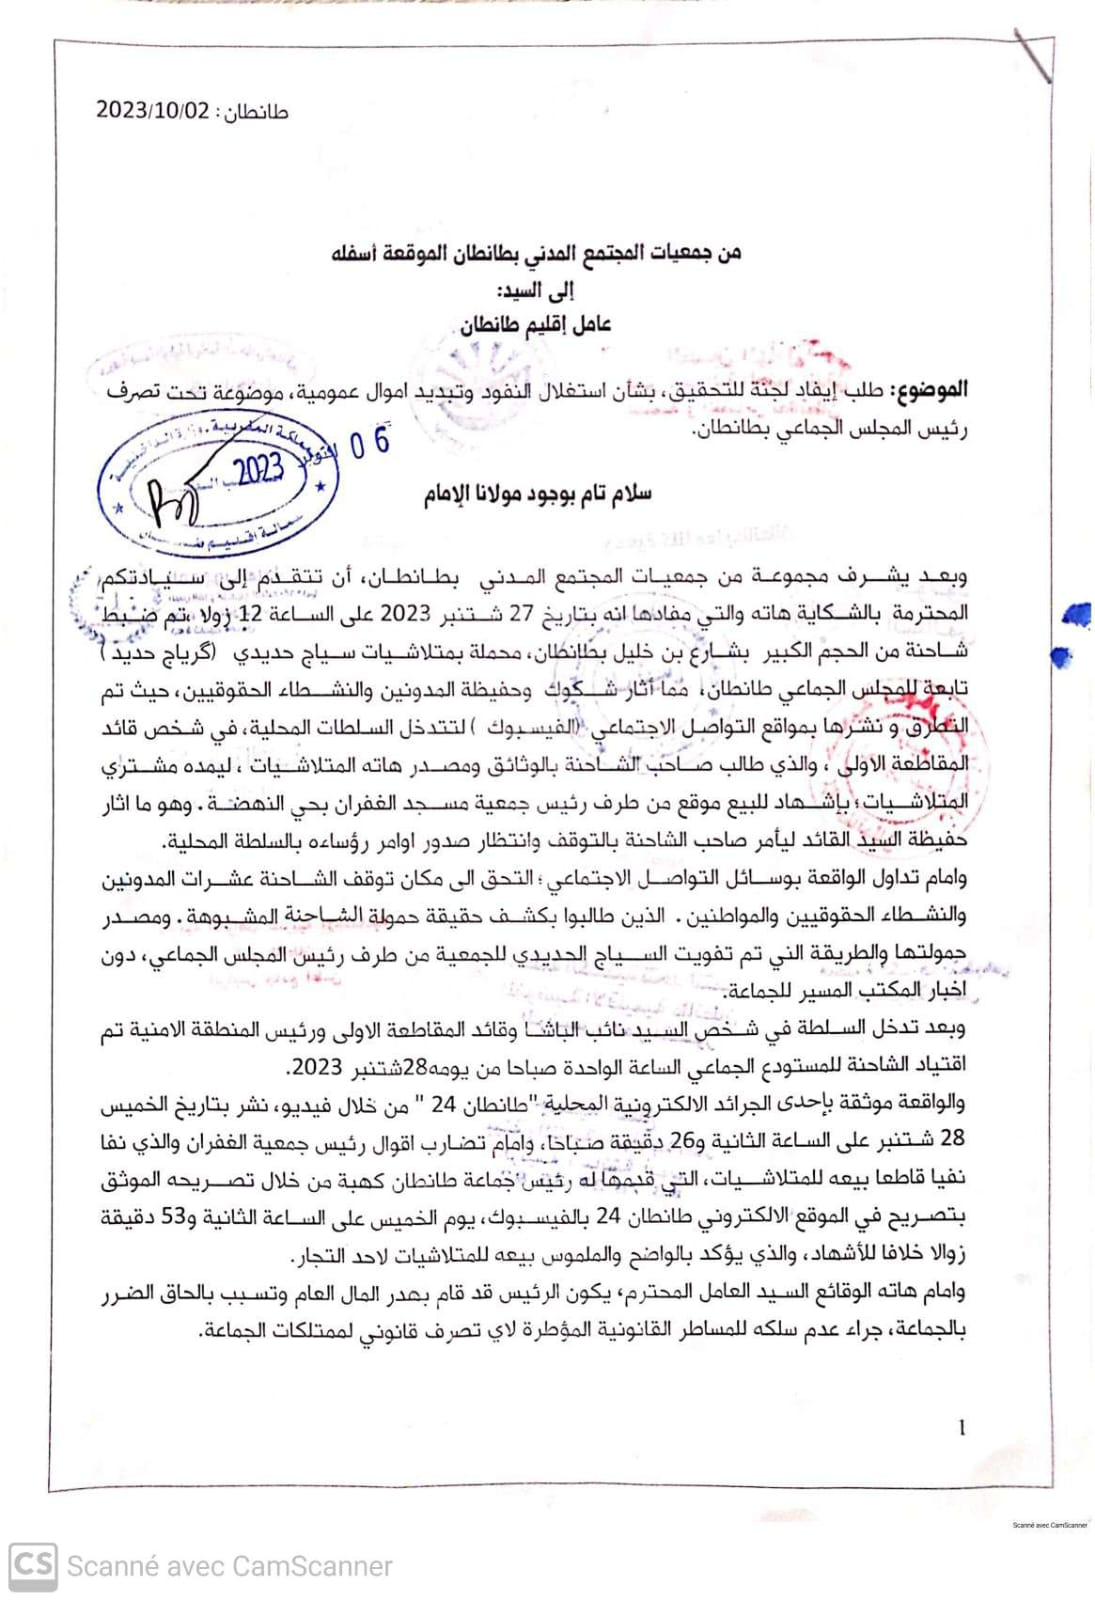 طانطان : 2023/10/02
من جمعيات المجتمع المدني بطانطان الموقعة أسفله
إلى السيد:
عامل إقليم طانطان
الموضوع: طلب إيفاد لجنة للتحقيق، بشأن استغلال النفود وتبديد اموال عمومية، موضوعة تحت تصرف
رئيس المجلس الجماعي بطانطان.
06 اكتوبر 2023
سلام تام بوجود مولانا الإمام
وبعد يشرف مجموعة من جمعيات المجتمع المدني بطانطان، أن تتقدم إلى سيادتكم
المحترمة بالشكاية هاته والتي مفادها انه بتاريخ 27 شتنبر 2023 على الساعة 12 زولا ،تم ضبط
شاحنة من الحجم الكبير بشارع بن خليل بطانطان، محملة بمتلاشيات سياج حديدي (گرياج حديد )
تابعة للمجلس الجماعي طانطان، مما أثار شكوك وحفيظة المدونين والنشطاء الحقوقيين، حيث تم
التطرق و نشرها بمواقع التواصل الاجتماعي (الفيسبوك ) لتتدخل السلطات المحلية، في شخص قائد
المقاطعة الاولى ، والذي طالب صاحب الشاحنة بالوثائق ومصدر هاته المتلاشيات ، ليمده مشتري
المتلاشيات؛ بإشهاد للبيع موقع من طرف رئيس جمعية مسجد الغفران بحي النهضة . وهو ما اثار
حفيظة السيد القائد ليأمر صاحب الشاحنة بالتوقف وانتظار صدور اوامر رؤساءه بالسلطة المحلية.
وامام تداول الواقعة بوسائل التواصل الاجتماعي؛ التحق الى مكان توقف الشاحنة عشرات المدونين
والنشطاء الحقوقيين والمواطنين . الذين طالبوا بكشف حقيقة حمولة الشاحنة المشبوهة . ومصدر
حمولتها والطريقة التي تم تفويت السياج الحديدي للجمعية من طرف رئيس المجلس الجماعي، دون
اخبار المكتب المسير للجماعة.
وبعد تدخل السلطة في شخص السيد نائب الباشا وقائد المقاطعة الاولى ورئيس المنطقة الامنية تم
اقتياد الشاحنة للمستودع الجماعي الساعة الواحدة صباحا من يومه28شتنبر 2023.
والواقعة موثقة بإحدى الجرائد الالكترونية المحلية "طانطان 24 " من خلال فيديو، نشر بتاريخ الخميس
28 شتنبر على الساعة الثانية و26 دقيقة صباحا، وامام تضارب اقوال رئيس جمعية الغفران والذي نفا
نفيا قاطعا بيعه للمتلاشيات، التي قدمها له رئيس جماعة طانطان كهبة من خلال تصريحه الموثق
بتصريح في الموقع الالكتروني طانطان 24 بالفيسبوك، يوم الخميس على الساعة الثانية و53 دقيقة
زوالا خلافا للأشهاد، والذي يؤكد بالواضح والملموس بيعه للمتلاشيات لاحد التجار.
وامام هاته الوقائع السيد العامل المحترم، يكون الرئيس قد قام بهدر المال العام وتسبب بالحاق الضرر
بالجماعة، جراء عدم سلكه للمساطر القانونية المؤطرة لاي تصرف قانوني لممتلكات الجماعة.
1
Scanné avec CamScanner
CS Scanné avec CamScanner